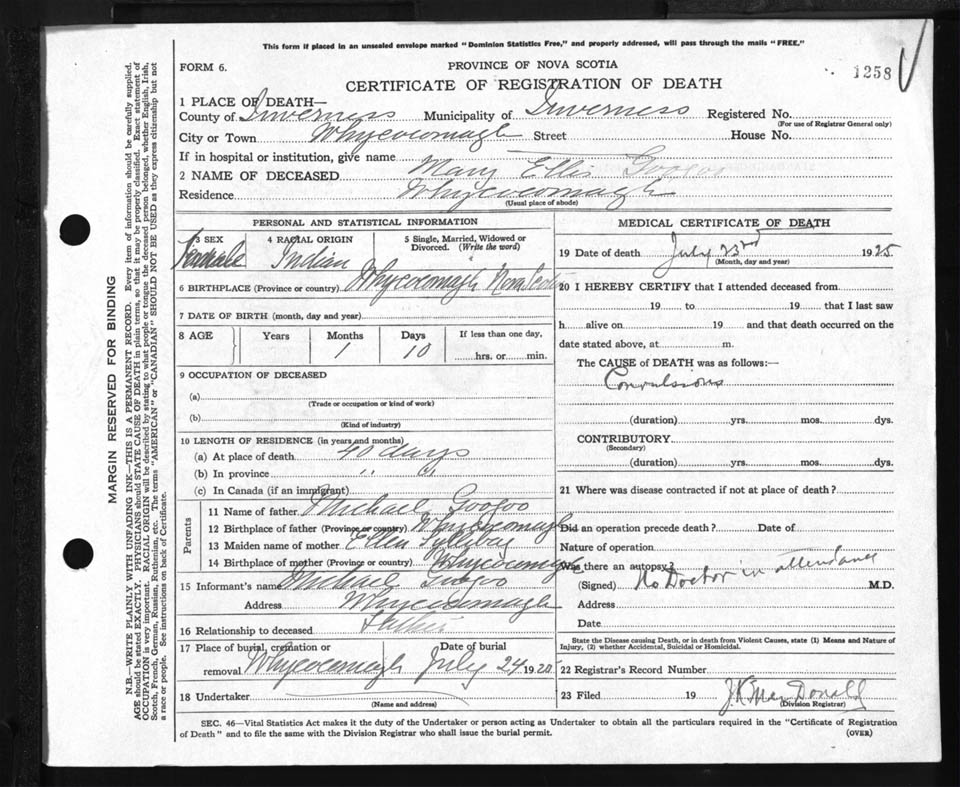 This form if placed in an unsealed envelope marked "Dominion Statistics Free," and properly addressed, will pass through the mails "FREE."
FORM 6.
PROVINCE OF NOVA SCOTIA
CERTIFICATE OF REGISTRATION OF DEATH
1258
1 PLACE OF DEATH—
County of Inverness Municipality of Inverness Registered No.
(For use of Registrar General only)
City or Town Whycocomagh Street House No.
If in hospital or institution, give name
2 NAME OF DECEASED Mary Ellis Googoo
Residence Whycocomagh
(Usual place of abode)
PERSONAL AND STATISTICAL INFORMATION
3 SEX
Female
4 RACIAL ORIGIN
Indian
5 Single, Married, Widowed or Divorced. (Write the word)
6 BIRTHPLACE (Province or country) Whycocomagh Nova Scotia
7 DATE OF BIRTH (month, day and year)
8 AGE Years Months Days If less than one day,
1 10 hrs. or min.
9 OCCUPATION OF DECEASED
(a)
(Trade or occupation or kind of work)
(b)
(Kind of industry)
10 LENGTH OF RESIDENCE (in years and months)
(a) At place of death 40 days
(b) In province " "
(c) In Canada (if an immigrant)
Parents
11 Name of father Michael Googoo
12 Birthplace of father (Province or country) Whycocomagh
13 Maiden name of mother Ellen
14 Birthplace of mother (Province or country) Whycocomagh
15 Informant's name Michael Googoo
Address Whycocomagh
16 Relationship to deceased Father
17 Place of burial, cremation or Date of burial
removal Whycocomagh July 24 1925
18 Undertaker
(Name and address)
MEDICAL CERTIFICATE OF DEATH
19 Date of death July 23rd 1925
(Month, day and year)
20 I HEREBY CERTIFY that I attended deceased from
19 to 19 that I last saw
h alive on 19 and that death occurred on the
date stated above, at m.
The CAUSE of DEATH was as follows:
Convulsions
(duration) yrs. mos. dys.
CONTRIBUTORY
(Secondary)
(duration) yrs. mos. dys.
21 Where was disease contracted if not at place of death?
Did an operation precede death? Date of
Nature of operation
Was there an autopsy?
(Signed) No Doctor in attendance M.D.
Address
Date
State the Disease causing Death, or in death from Violent Causes, state (1) Means and Nature of
Injury, (2) whether Accidental, Suicidal or Homicidal.
22 Registrar's Record Number
23 Filed 19 J.K. MacDonald
(Division Registrar)
SEC. 46—Vital Statistics Act makes it the duty of the Undertaker or person acting as Undertaker to obtain all the particulars required in the "Certificate of Registration
of Death" and to file the same with the Division Registrar who shall issue the burial permit.
(OVER)
MARGIN RESERVED FOR BINDING
N.B.—WRITE PLAINLY WITH UNFADING INK—THIS IS A PERMANENT RECORD. Every item of information should be carefully supplied.
AGE should be stated EXACTLY. PHYSICIANS should STATE CAUSE OF DEATH in plain terms, so that it may be properly classified. Exact statement of
OCCUPATION is very important. RACIAL ORIGIN will be described by stating to what people or tongue the deceased person belonged, whether English, Irish,
Scotch, French, German, Russian, Ruthenian, etc. The terms "AMERICAN" or "CANADIAN" SHOULD NOT BE USED as they express citizenship but not
a race or people. See instructions on back of Certificate.